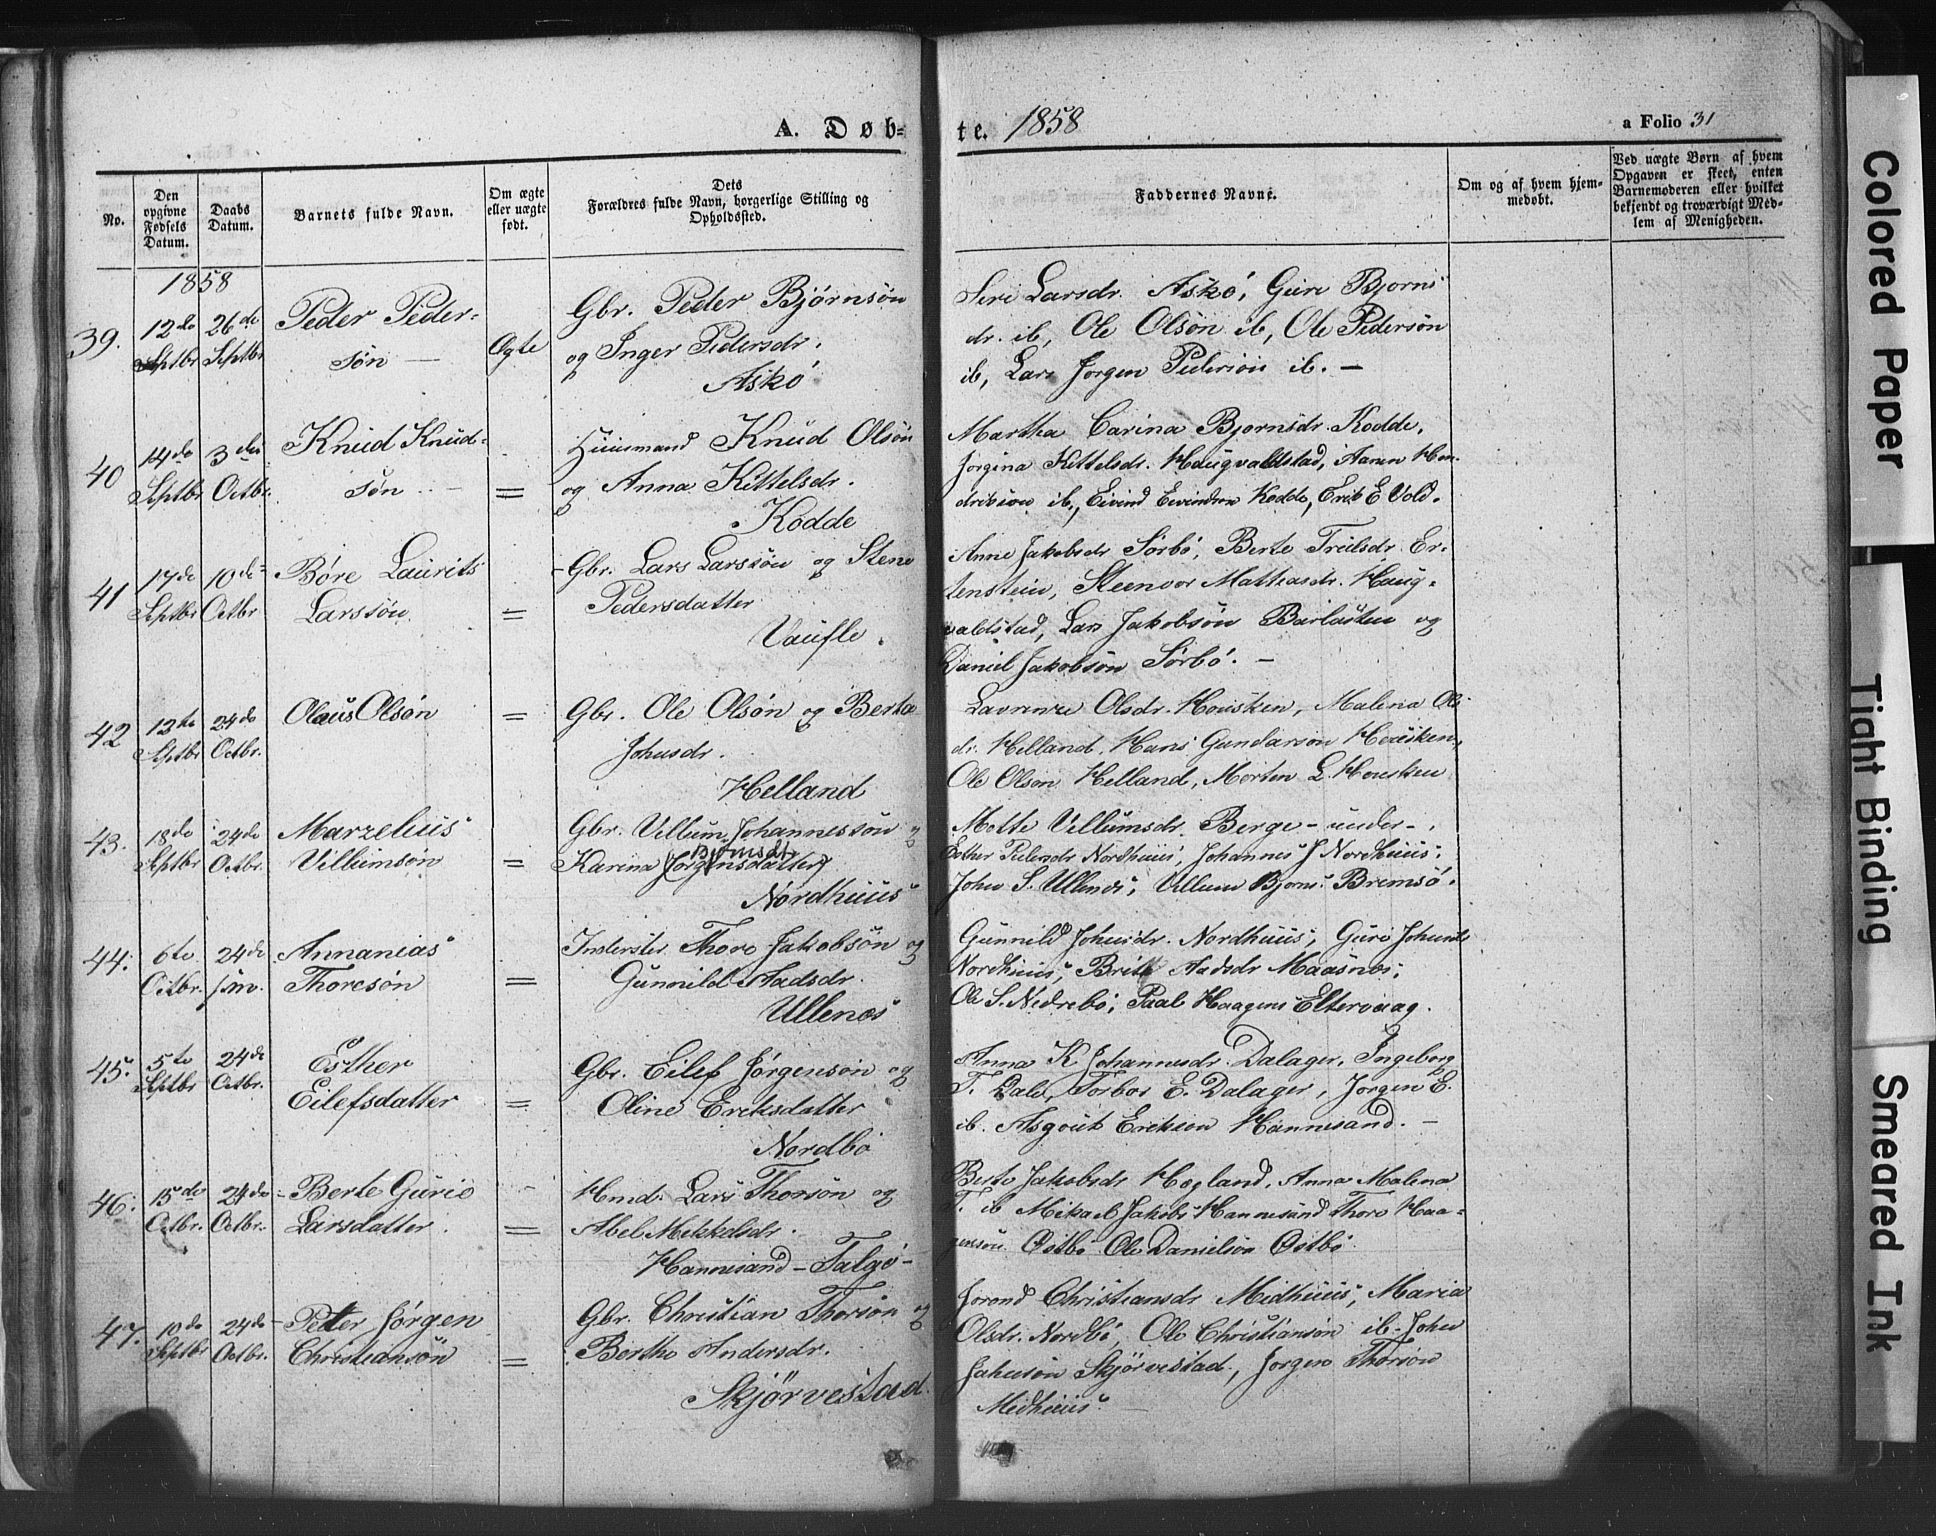 A. Døb-
te. 1858
a Folio 31
No.
Den opgivne Fødsels Datum.
Daabs Datum.
Barnets fulde Navn.
Om ægte eller uægte født.
Dets Forældres fulde Navn, borgerlige Stilling og Opholdssted.
Faddernes Navne.
Om og af hvem hjem-
medøbt.
Ved uægte Børn af hvem
Opgaven er skeet, enten
Barnemoderen eller hvilket
bekjendt og troværdigt Med-
lem af Menigheden.
1858
39. 12te Septbr 26de Septbr
Peder Peder-
søn —
Ægte
Gbr. Peder Bjørnsøn
og Inger Pedersdr.
Askø
Siri Larsdr. Askø, Guri Bjorns
dr. ib, Ole Olsøn ib, Ole Pedersøn
ib, Lars Jorgen Pedersøn ib. —
40 14de Septbr 3die Octbr.
Knud Knud-
søn —
=
Huusmand Knud Olsøn
og Anna Kittelsdr.
Kodde
Martha Carina Bjornsdr. Kodde,
Jorgina Kittelsdr. Haugvaldstad, Aanen Hen-
driksøn ib., Eivind Eivindsen Kodde, Erik E Vold.
41 17de Septbr 10de Octbr
Børe Laurits
Larssøn.
=
Gbr. Lars Larssøn og Stene
Pedersdatter
Vaufle.
Anne Jakobsdr Sørbø, Berte Troilsdr. Er-
tenstein, Steenvor Mathiasdr. Haug-
valdstad, Lars Jakobsøn Barlasten og
Daniel Jakobsøn Sørbø. —
42 12te Septbr 24de Octbr.
Olaus Olsøn
=
Gbr. Ole Olsøn og Berta
Johnsdr.
Helland
Lavrense Olsdr. Housken, Malena Ols
dr. Helland, Hans Gundarson Housken,
Ole Olson Helland, Morten L. Housken
43. 18de Septbr 24de Octbr.
Marzelius
Villumsøn
=
Gbr. Villum Johannessøn og
Bjørnsdtr
Karina (Jørgensdatter)
Nordhuus
Mette Villumsdr. Berge-under-,
Esther Pedersdr Nordhuus, Johannes J Nordhuus,
John S. Ullenes, Villum Bjorns. Bremsø.
44. 6te Octbr. 24de
Annanias
Thoresøn
=
Inderster Thore Jakobsøn og
Gunnild Aadsdr.
Ullenes
Gunnild Johnsdr. Nordhuus, Guri Johnsdr
Nordhuus, Brita Aadsdr Maasnes,
Ole S. Nedrebø, Paal Haagens Eltervaag.
45. 5te Septbr 24de Octbr.
Esther
Eilefsdatter
=
Gbr. Eilef Jørgensøn og
Oline Eriksdatter
Nordbø
Anna K Johannesdr. Dalager, Ingeborg
T. Dale, Torbor E. Dalager, Jorgen E.
ib. Asgout Eriksen Hannesand. —
46. 15de Octbr. 24de Octbr.
Berte Gurie
Larsdatter.
=
Hmd. Lars Thorsøn og
Abel Mikkelsdr.
Hannesand – Talgø –
Berte Jakobsdr Hegland, Anna Malena
T. ib Mikael Jakobs Hannesand Thore Haa-
gensøn Østbø Ole Danielson Østbø.
47. 10de Septbr 24de Octbr.
Peter Jørgen
Christiansøn
=
Gbr. Christian Thorsøn og
Berthe Andersdr.
Skjørvestad.
Jorond Christiansdr Midhuus, Maria
Olsdr. Nordbø, Ole Christiansøn ib. John
Johnsøn Skjørvestad, Jorgen Thorsøn
Midhuus.
Colored Paper
Tight Binding
Smeared Ink